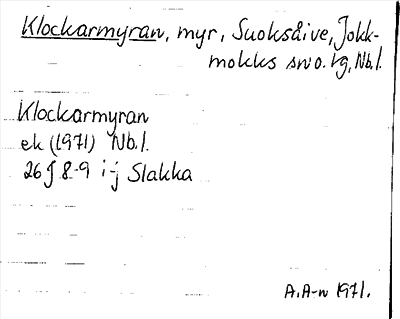 Klockarmyran, myr, Suoksåive, Jokk-
mokks sn o. tg, Nb.l.
Klockarmyran
ek (1971) Nb.l.
26J 8-9 i-j Slakka
A.A-n 1971.